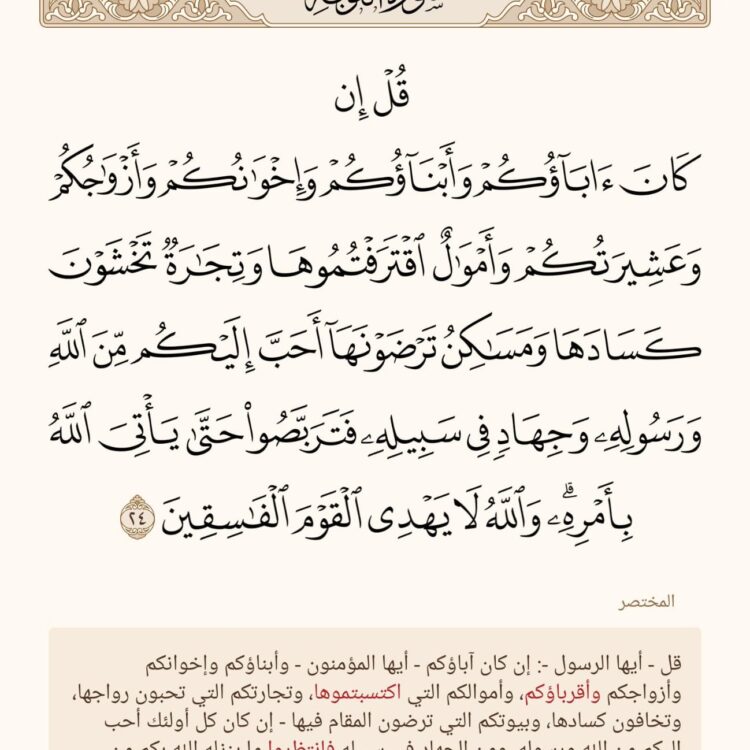 سورة التوبة
قُلۡ إِن
كَانَ ءَابَآؤُكُمۡ وَأَبۡنَآؤُكُمۡ وَإِخۡوَٰنُكُمۡ وَأَزۡوَٰجُكُمۡ
وَعَشِيرَتُكُمۡ وَأَمۡوَٰلٌ ٱقۡتَرَفۡتُمُوهَا وَتِجَٰرَةٞ تَخۡشَوۡنَ
كَسَادَهَا وَمَسَٰكِنُ تَرۡضَوۡنَهَآ أَحَبَّ إِلَيۡكُم مِّنَ ٱللَّهِ
وَرَسُولِهِۦ وَجِهَادٖ فِي سَبِيلِهِۦ فَتَرَبَّصُواْ حَتَّىٰ يَأۡتِيَ ٱللَّهُ
بِأَمۡرِهِۦۗ وَٱللَّهُ لَا يَهۡدِي ٱلۡقَوۡمَ ٱلۡفَٰسِقِينَ ٢٤
المختصر
قل - أيها الرسول -: إن كان آباؤكم - أيها المؤمنون - وأبناؤكم وإخوانكم
وأزواجكم وأقرباؤكم، وأموالكم التي اكتسبتموها، وتجارتكم التي تحبون رواجها،
وتخافون كسادها، وبيوتكم التي ترضون المقام فيها - إن كان كل أولئك أحب
إليكم من الله ورسوله، ومن الجهاد في سبيله فانتظروا ما ينزله الله بكم من